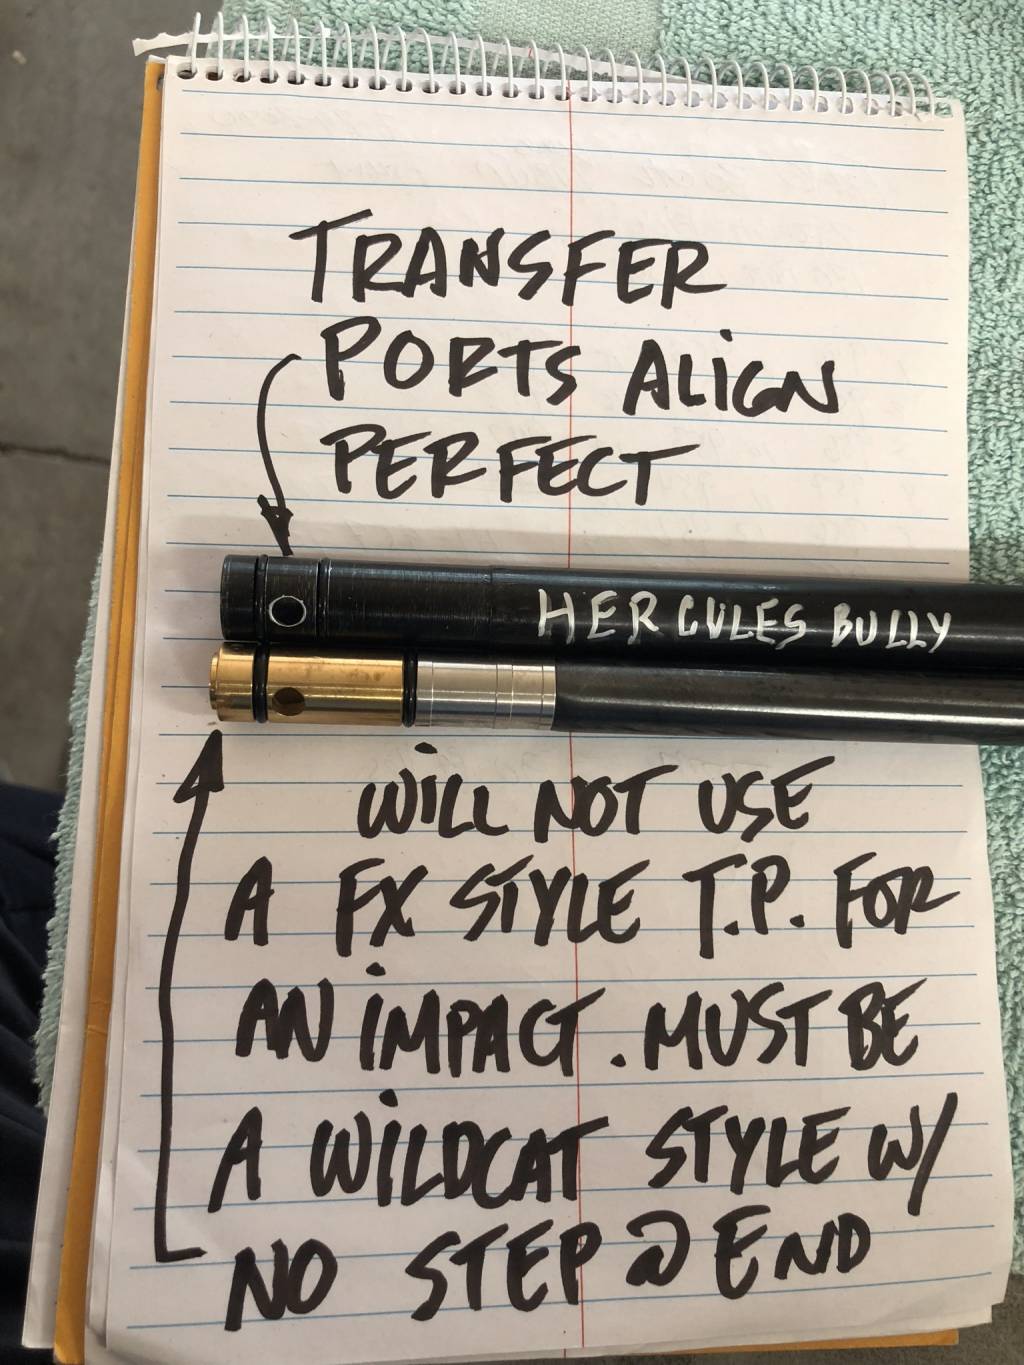 TRANSFER
PORTS ALIGN
PERFECT
HERCULES BULLY
WILL NOT USE
A FX STYLE T.P. FOR
AN IMPACT. MUST BE
A WILDCAT STYLE W/
NO STEP @ END